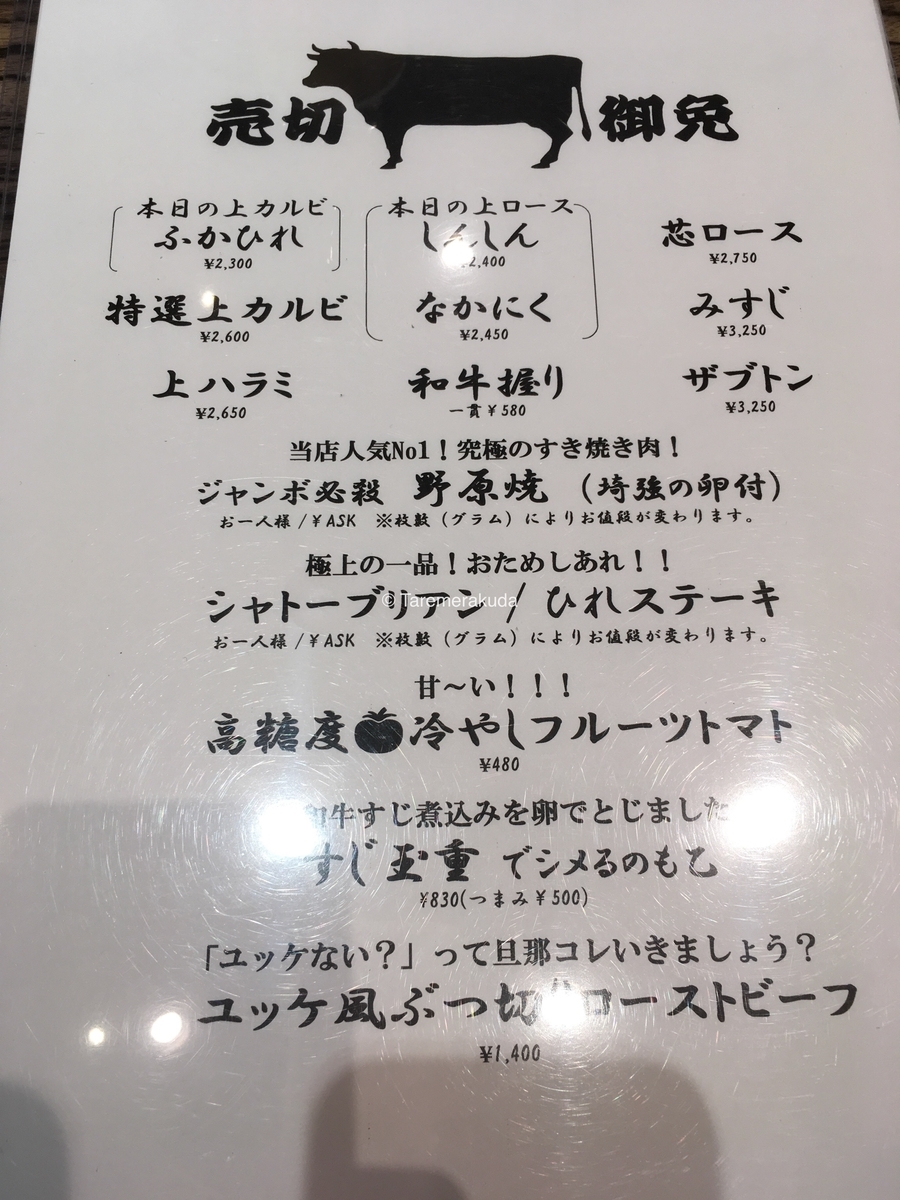 売切 御免
本日の上カルビ
ふかひれ
¥2,300
特選上カルビ
¥2,600
上ハラミ
¥2,650
本日の上ロース
しんしん
2,400
なかにく
¥2,450
和牛握り
一貫¥580
芯ロース
¥2,750
みすじ
¥3,250
ザブトン
¥3,250
当店人気No1！究極のすき焼き肉！
ジャンボ必殺 野原焼（埼強の卵付）
お一人様/¥ASK ※枚数（グラム）によりお値段が変わります。
極上の一品！おためしあれ！！
シャトーブリアン/ひれステーキ
© Taremerakuda
お一人様/¥ASK ※枚数（グラム）によりお値段が変わります。
甘〜い！！！
高糖度 冷やしフルーツトマト
¥480
和牛すじ煮込みを卵でとじました
すじ玉重 でシメるのも乙
¥830(つまみ¥500)
「ユッケない？」って旦那コレいきましょう？
ユッケ風ぶつ切 ローストビーフ
¥1,400